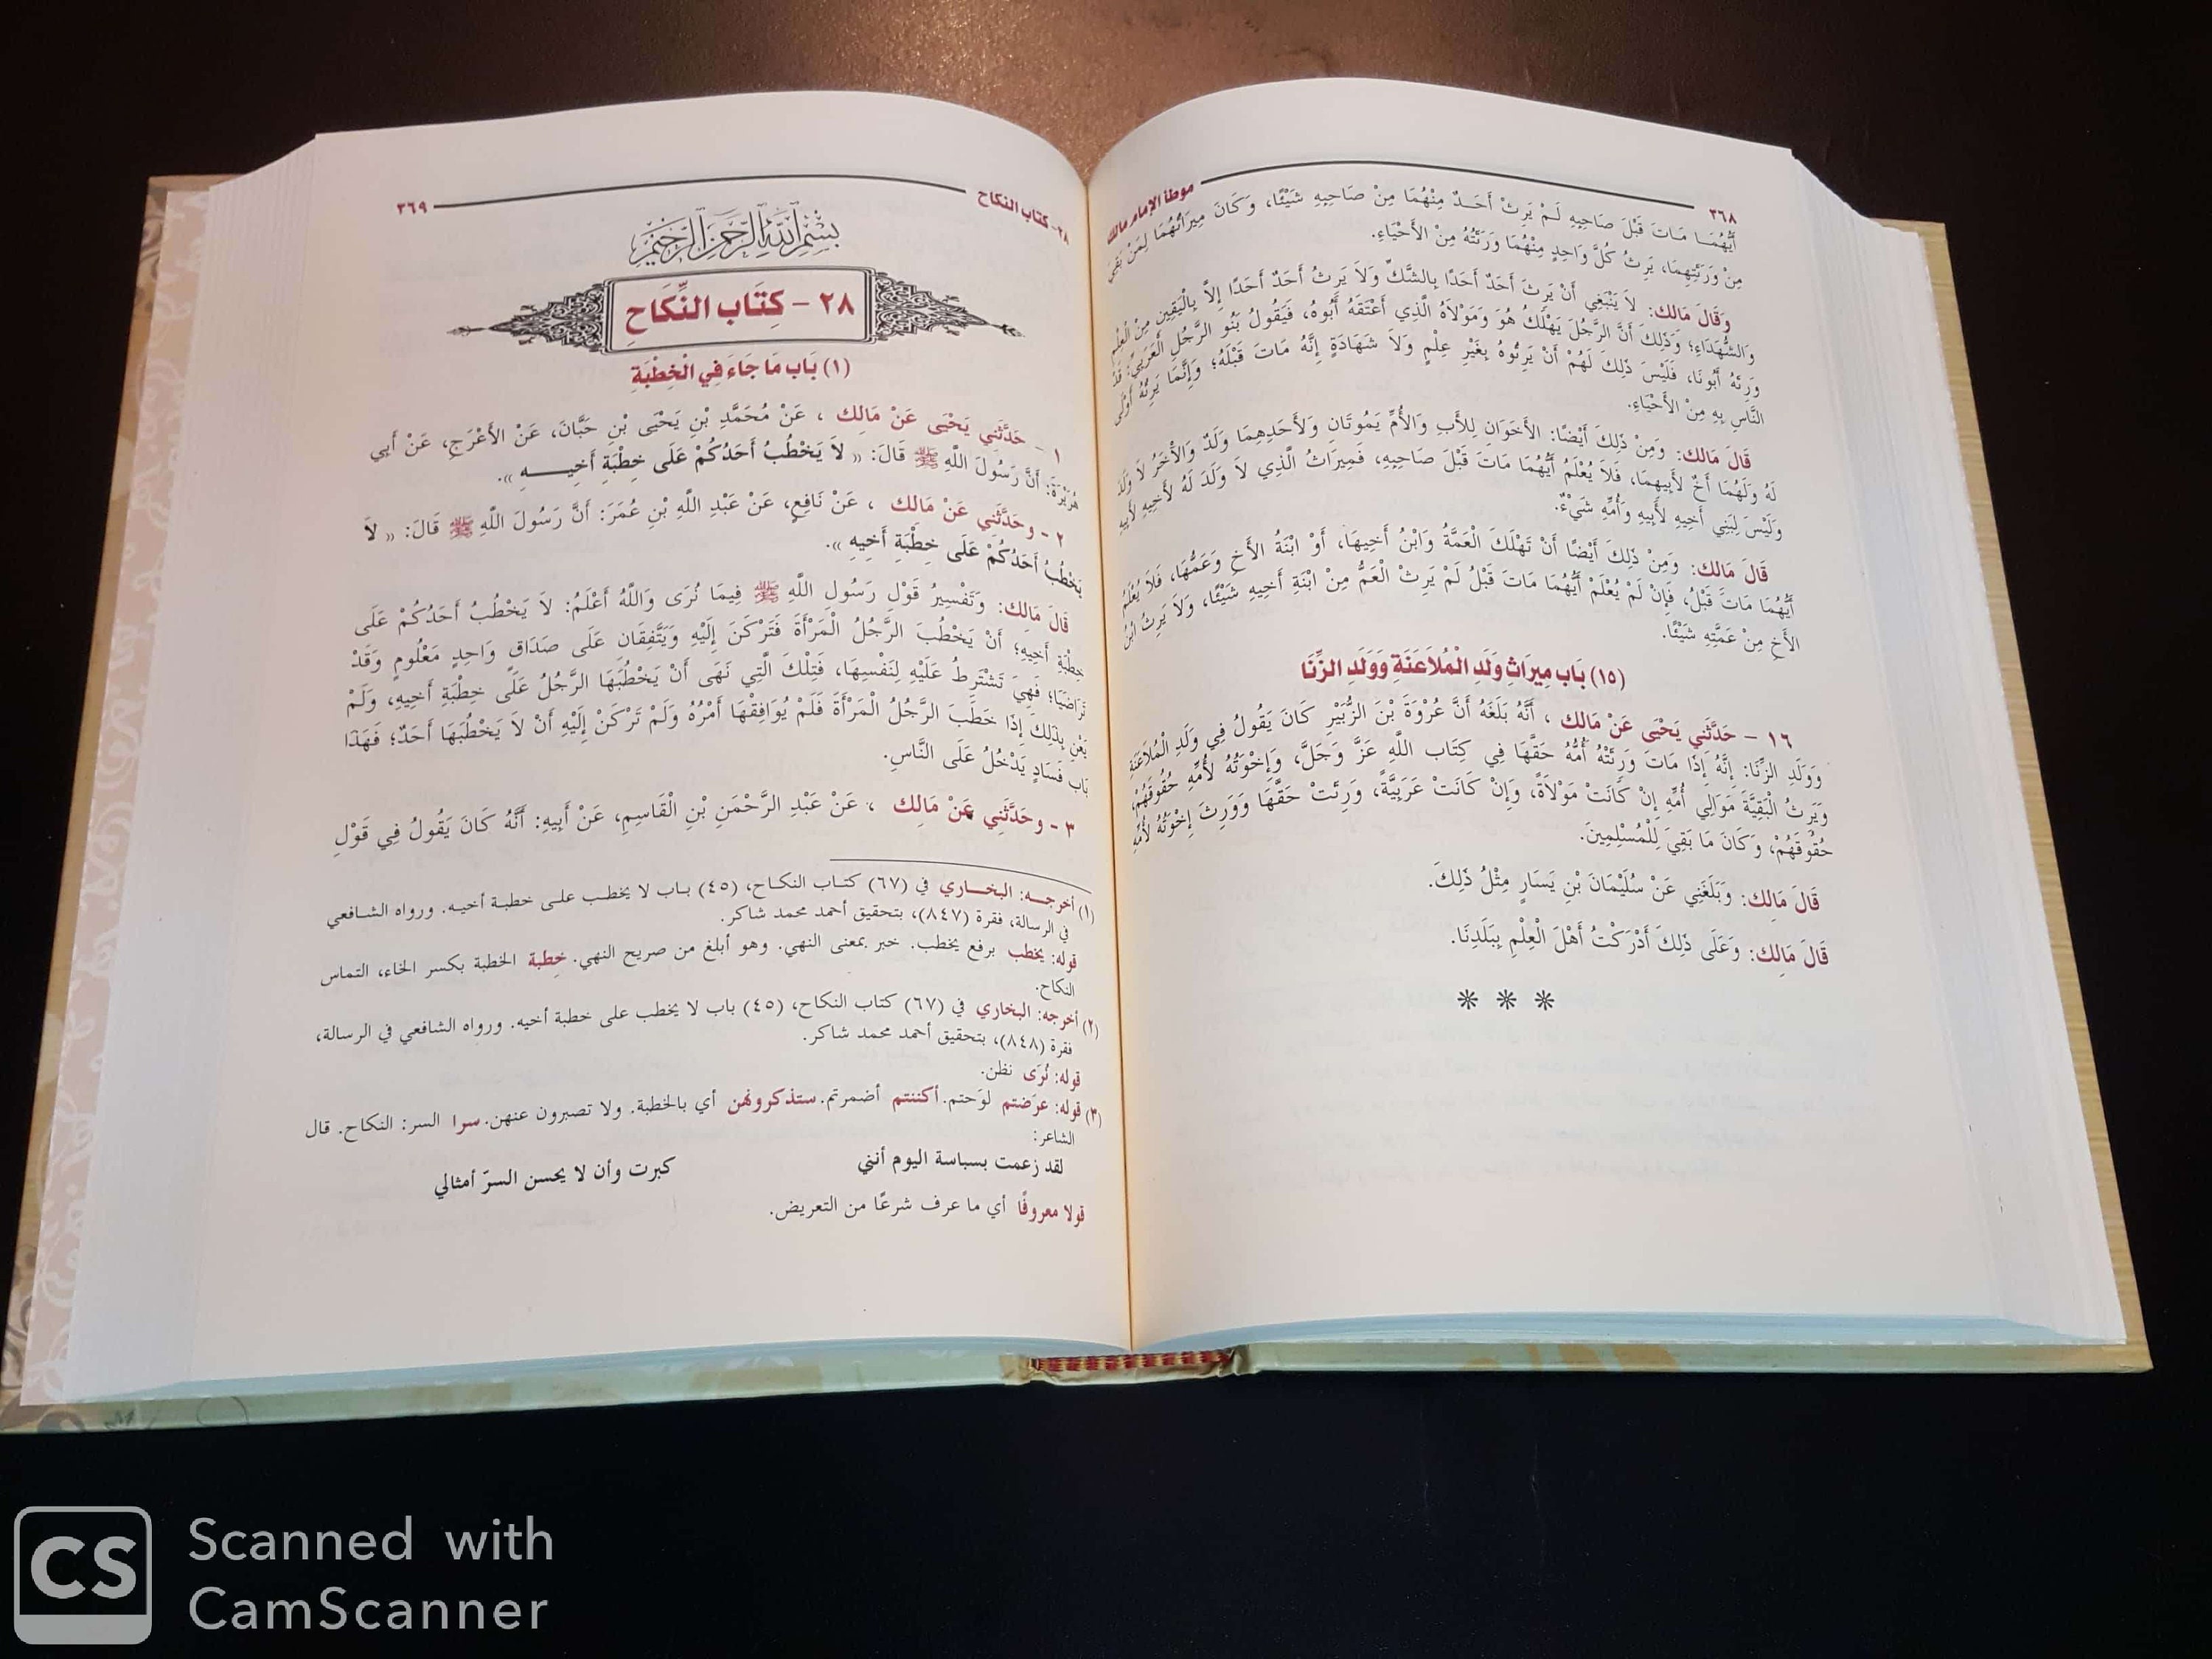 ٣٦٨
موطأ الإمام مالك
أَيُّهُمَا مَاتَ قَبْلَ صَاحِبِهِ لَمْ يَرِثْ أَحَدٌ مِنْهُمَا مِنْ صَاحِبِهِ شَيْئًا، وَكَانَ مِيرَاثُهُمَا لِمَنْ بَقِيَ
مِنْ وَرَثَتِهِمَا، يَرِثُ كُلَّ وَاحِدٍ مِنْهُمَا وَرَثَتُهُ مِنْ الأَحْيَاءِ.
وَقَالَ مَالك: لاَ يَنْبَغِي أَنْ يَرِثَ أَحَدٌ أَحَدًا بِالشَّكِّ وَلاَ يَرِثُ أَحَدٌ أَحَدًا إِلاَّ بِالْيَقِينِ مِنْ الْعِلْمِ
وَالشُّهَدَاءِ؛ وَذَلِكَ أَنَّ الرَّجُلَ يَهْلَكُ هُوَ وَمَوْلاَهُ الَّذِي أَعْتَقَهُ أَبُوهُ، فَيَقُولُ بَنُو الرَّجُلِ الْعَرَبِيِّ: قَدْ
وَرِثَهُ أَبُونَا، فَلَيْسَ ذَلِكَ لَهُمْ أَنْ يَرِثُوهُ بِغَيْرِ عِلْمٍ وَلاَ شَهَادَةٍ إِنَّهُ مَاتَ قَبْلَهُ؛ وَإِنَّمَا يَرِثُهُ أَوْلَى
النَّاسِ بِهِ مِنْ الأَحْيَاءِ.
قَالَ مَالك: وَمِنْ ذَلِكَ أَيْضًا: الأَخَوَانِ لِلأَبِ وَالأُمِّ يَمُوتَانِ وَلأَحَدِهِمَا وَلَدٌ وَالآخَرُ لاَ وَلَدَ
لَهُ وَلَهُمَا أَخٌ لأَبِيهِمَا، فَلاَ يُعْلَمُ أَيُّهُمَا مَاتَ قَبْلَ صَاحِبِهِ، فَمِيرَاثُ الَّذِي لاَ وَلَدَ لَهُ لأَخِيهِ لأَبِيهِ
وَلَيْسَ لِبَنِي أَخِيهِ لأَبِيهِ وَأُمِّهِ شَيْءٌ.
قَالَ مَالك: وَمِنْ ذَلِكَ أَيْضًا أَنْ تَهْلَكَ الْعَمَّةُ وَابْنُ أَخِيهَا، أَوْ ابْنَةُ الأَخِ وَعَمُّهَا، فَلاَ يُعْلَمُ
أَيُّهُمَا مَاتَ قَبْلُ، فَإِنْ لَمْ يُعْلَمْ أَيُّهُمَا مَاتَ قَبْلُ لَمْ يَرِثْ الْعَمُّ مِنْ ابْنَةِ أَخِيهِ شَيْئًا، وَلاَ يَرِثُ ابْنُ
الأَخِ مِنْ عَمَّتِهِ شَيْئًا.
(١٥) بَاب مِيرَاثِ وَلَدِ الْمُلاَعَنَةِ وَوَلَدِ الزِّنَا
١٦ - حَدَّثَنِي يَحْيَى عَنْ مَالك ، أَنَّهُ بَلَغَهُ أَنَّ عُرْوَةَ بْنَ الزُّبَيْرِ كَانَ يَقُولُ فِي وَلَدِ الْمُلاَعَنَةِ
وَوَلَدِ الزِّنَا: إِنَّهُ إِذَا مَاتَ وَرِثَتْهُ أُمُّهُ حَقَّهَا فِي كِتَاب اللَّهِ عَزَّ وَجَلَّ، وَإِخْوَتُهُ لأُمِّهِ حُقُوقَهُمْ،
وَيَرِثُ الْبَقِيَّةَ مَوَالِي أُمِّهِ إِنْ كَانَتْ مَوْلاَةً، وَإِنْ كَانَتْ عَرَبِيَّةً، وَرِثَتْ حَقَّهَا وَوَرِثَ إِخْوَتُهُ لأُمِّهِ
حُقُوقَهُمْ، وَكَانَ مَا بَقِيَ لِلْمُسْلِمِينَ.
قَالَ مَالِك: وَبَلَغَنِي عَنْ سُلَيْمَانَ بْنِ يَسَارٍ مِثْلُ ذَلِكَ.
قَالَ مَالِك: وَعَلَى ذَلِكَ أَدْرَكْتُ أَهْلَ الْعِلْمِ بِبَلَدِنَا.
* * *
٢٨- كتاب النكاح
٣٦٩
بِسْمِ اللَّهِ الرَّحْمَنِ الرَّحِيمِ
٢٨ - كِتَاب النِّكَاحِ
(١) بَاب مَا جَاءَ فِي الْخِطْبَةِ
١ - حَدَّثَنِي يَحْيَى عَنْ مَالك ، عَنْ مُحَمَّدِ بْنِ يَحْيَى بْنِ حَبَّانَ، عَنْ الأَعْرَجِ، عَنْ أَبِي
هُرَيْرَةَ: أَنَّ رَسُولَ اللَّهِ ﷺ قَالَ: « لاَ يَخْطُبُ أَحَدُكُمْ عَلَى خِطْبَةِ أَخِيهِ ».
٢ - وحَدَّثَنِي عَنْ مَالك ، عَنْ نَافِعٍ، عَنْ عَبْدِ اللَّهِ بْنِ عُمَرَ: أَنَّ رَسُولَ اللَّهِ ﷺ قَالَ: « لاَ
يَخْطُبُ أَحَدُكُمْ عَلَى خِطْبَةِ أَخِيهِ ».
قَالَ مَالك: وَتَفْسِيرُ قَوْلِ رَسُولِ اللَّهِ ﷺ فِيمَا نُرَى وَاللَّهُ أَعْلَمُ: لاَ يَخْطُبُ أَحَدُكُمْ عَلَى
خِطْبَةِ أَخِيهِ؛ أَنْ يَخْطُبَ الرَّجُلُ الْمَرْأَةَ فَتَرْكَنَ إِلَيْهِ وَيَتَّفِقَان عَلَى صَدَاقٍ وَاحِدٍ مَعْلُومٍ وَقَدْ
تَرَاضَيَا؛ فَهِيَ تَشْتَرِطُ عَلَيْهِ لِنَفْسِهَا، فَتِلْكَ الَّتِي نَهَى أَنْ يَخْطُبَهَا الرَّجُلُ عَلَى خِطْبَةِ أَخِيهِ، وَلَمْ
يَعْنِ بِذَلِكَ إِذَا خَطَبَ الرَّجُلُ الْمَرْأَةَ فَلَمْ يُوَافِقْهَا أَمْرُهُ وَلَمْ تَرْكَنْ إِلَيْهِ أَنْ لاَ يَخْطُبَهَا أَحَدٌ؛ فَهَذَا
بَاب فَسَادٍ يَدْخُلُ عَلَى النَّاسِ.
٣ - وحَدَّثَنِي عَنْ مَالِك ، عَنْ عَبْدِ الرَّحْمَنِ بْنِ الْقَاسِمِ، عَنْ أَبِيهِ: أَنَّهُ كَانَ يَقُولُ فِي قَوْلِ
(١) أخرجه: البخاري في (٦٧) كتاب النكاح، (٤٥) باب لا يخطب على خطبة أخيه. ورواه الشافعي
في الرسالة، فقرة (٨٤٧)، بتحقيق أحمد محمد شاكر.
قوله: يخطب برفع يخطب. خبر بمعنى النهي. وهو أبلغ من صريح النهي. خِطبة الخطبة بكسر الخاء، التماس
النكاح.
(٢) أخرجه: البخاري في (٦٧) كتاب النكاح، (٤٥) باب لا يخطب على خطبة أخيه. ورواه الشافعي في الرسالة،
فقرة (٨٤٨)، بتحقيق أحمد محمد شاكر.
قوله: نُرَى نظن.
(٣) قوله: عرّضتم لوّحتم. أكننتم أضمرتم. ستذكرونهن أي بالخطبة. ولا تصبرون عنهن. سرا السر: النكاح. قال
الشاعر:
لقد زعمت بسباسة اليوم أنني كبرت وأن لا يحسن السرّ أمثالي
قولا معروفًا أي ما عرف شرعًا من التعريض.
CS
Scanned with
CamScanner